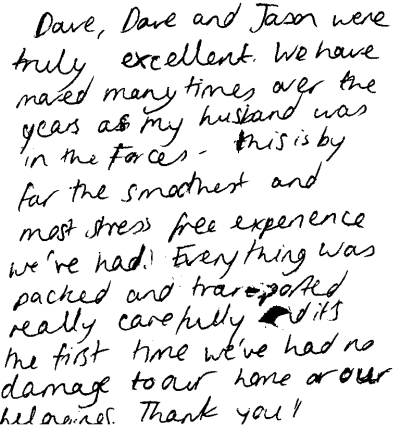 Dave, Dave and Jason were
truly excellent. We have
moved many times over the
years as my husband was
in the Forces - this is by
far the smoothest and
most stress free experience
we've had! Everything was
packed and transported
really carefully and its
the first time we've had no
damage to our home or our
belongings. Thank you!!